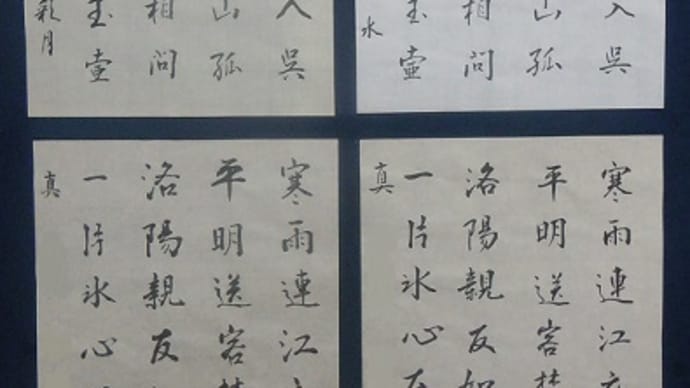 入呉
山孤
相問
玉壺
月
入呉
山孤
相問
玉壺
水
寒雨連江
平明送客
洛陽親友
一片氷心
真
寒雨連江
平明送客
洛陽親友如
一片氷心
真